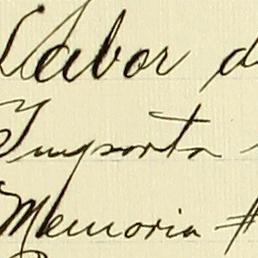 Labor d
Importa
Memoria #